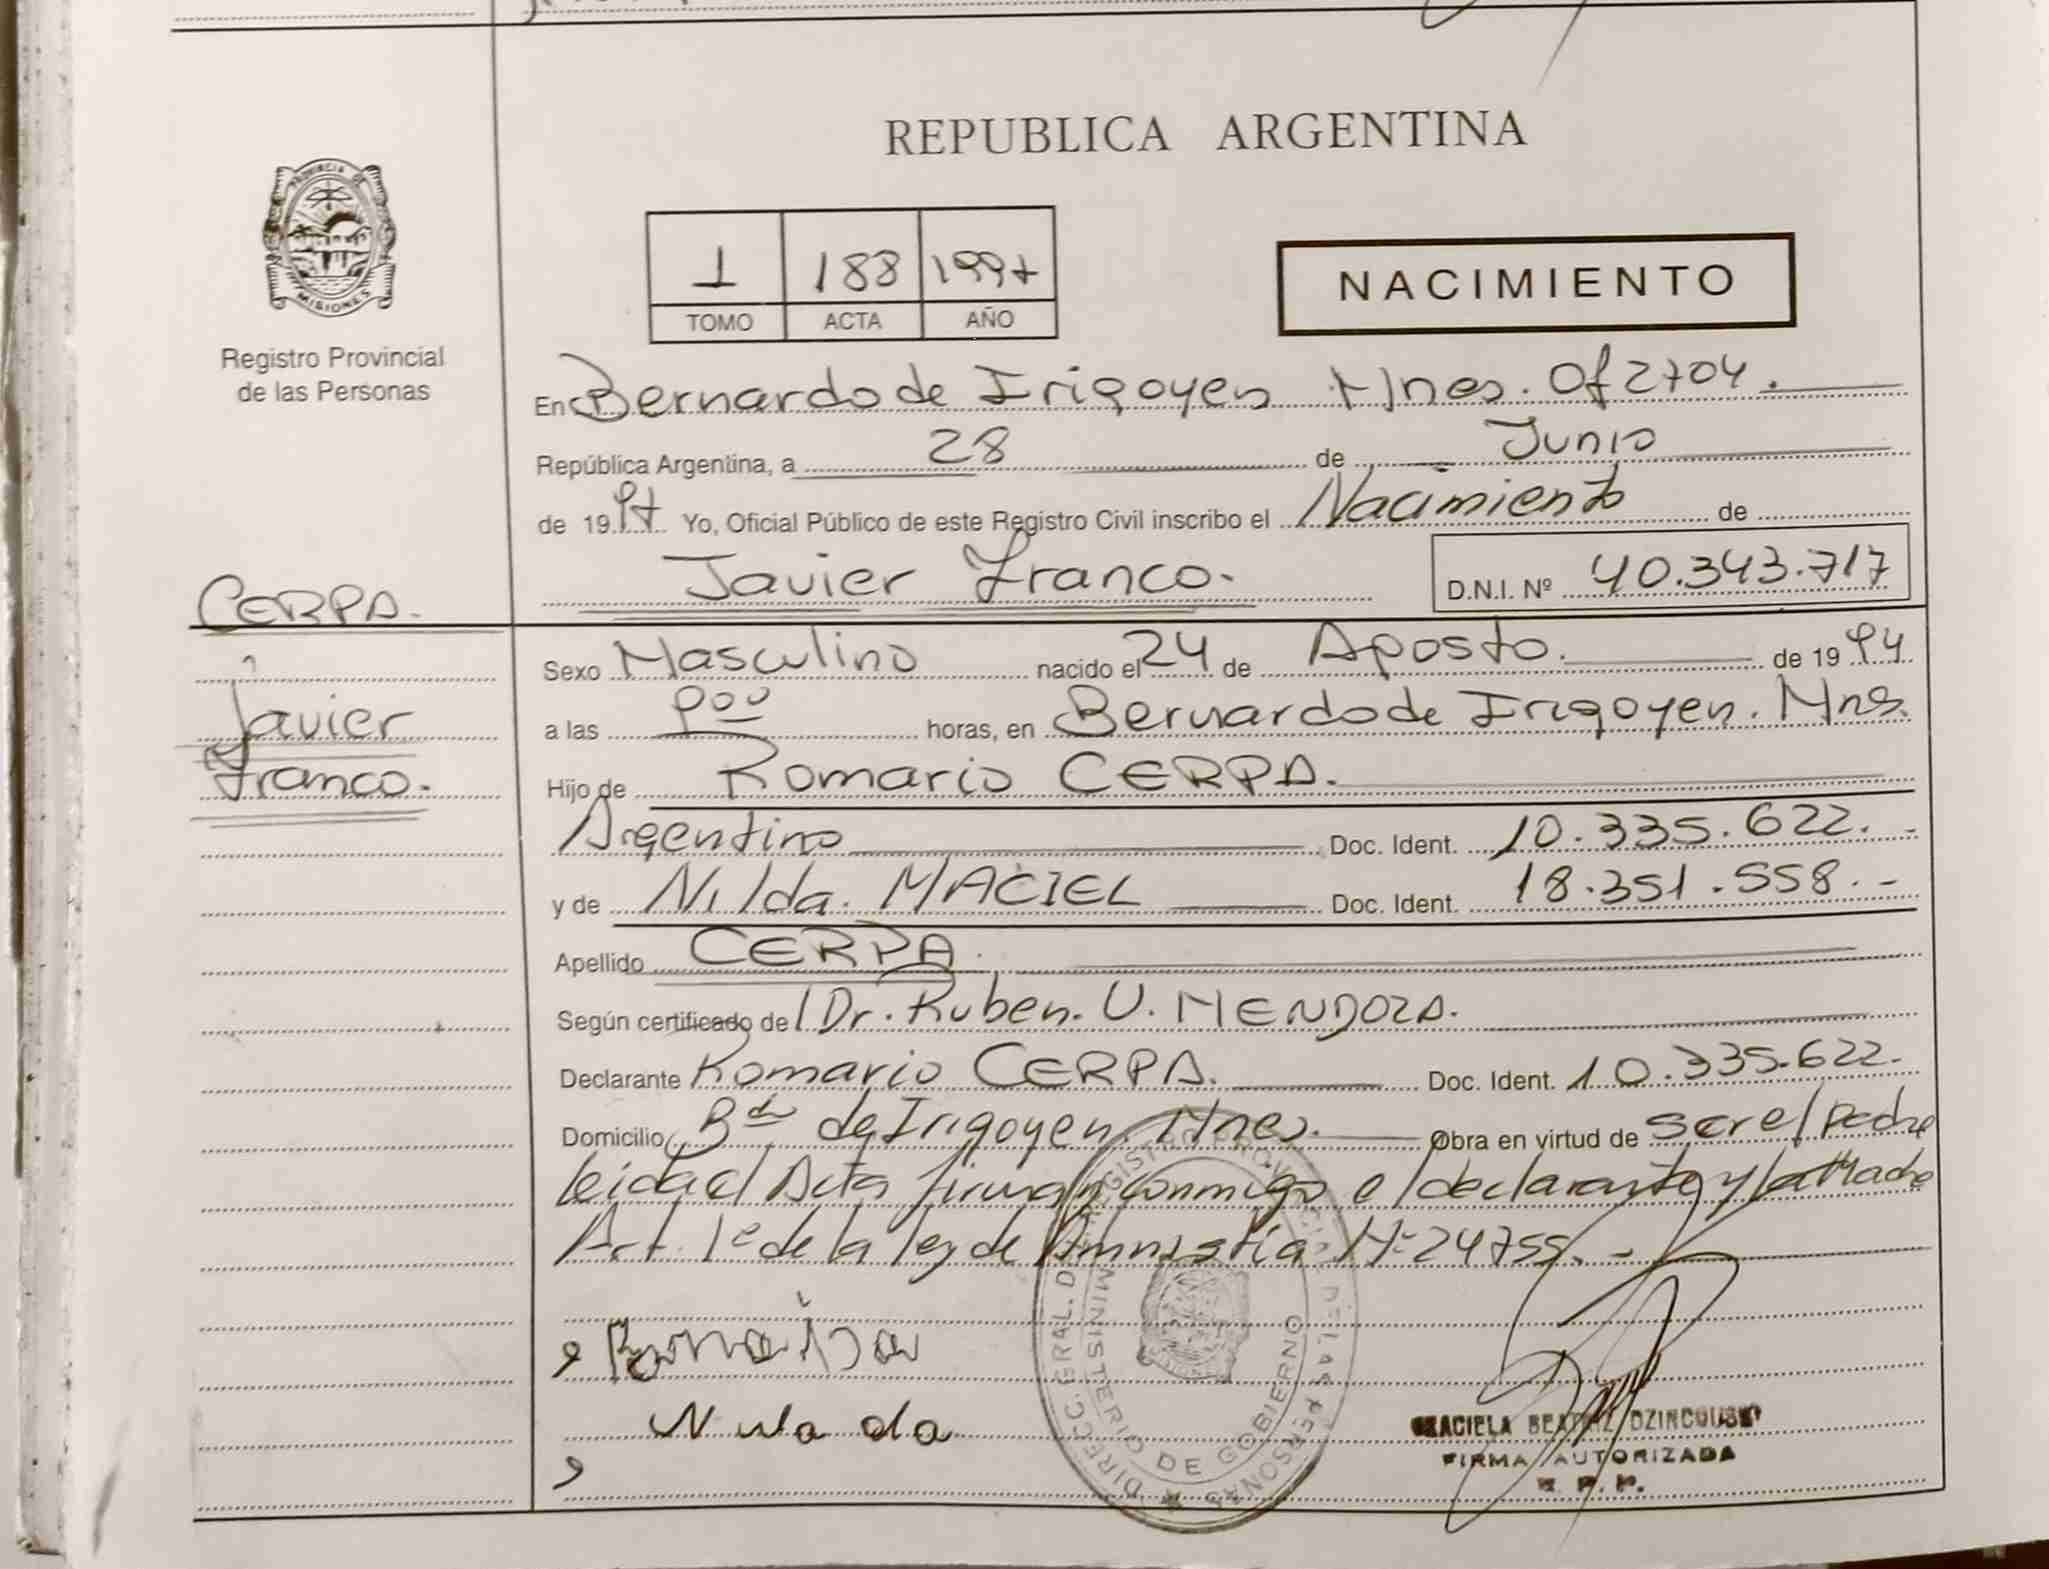 REPUBLICA ARGENTINA
PROVINCIA DE MISIONES
Registro Provincial
de las Personas
1 188 1997
TOMO ACTA AÑO
NACIMIENTO
En Bernardo de Irigoyen Mnes. Of 2704.
República Argentina, a 28 de Junio
de 1997 Yo, Oficial Público de este Registro Civil inscribo el Nacimiento de
Javier Franco. D.N.I. Nº 40.343.717
CERPA.
Javier
Franco.
Sexo Masculino nacido el 24 de Agosto. de 1994
a las horas, en Bernardo de Irigoyen. Mnes.
Hijo de Romario CERPA.
Argentino Doc. Ident. 10.335.622.-
y de Nilda. MACIEL Doc. Ident. 18.351.558.-
Apellido CERPA.
Según certificado del Dr. Ruben. U. MENDOZA.
Declarante Romario CERPA. Doc. Ident. 10.335.622.
Domicilio Bdo de Irigoyen. Mnes. Obra en virtud de ser el Padre
leida el Acta firman conmigo el declarante y la Madre
Art. 1º de la ley de Amnistia Nº 24755.-
DIRECC. GRAL. DEL REGISTRO PROVINCIAL DE LAS PERSONAS
MINISTERIO DE GOBIERNO
GRACIELA BEATRIZ
FIRMA AUTORIZADA
R. P. P.